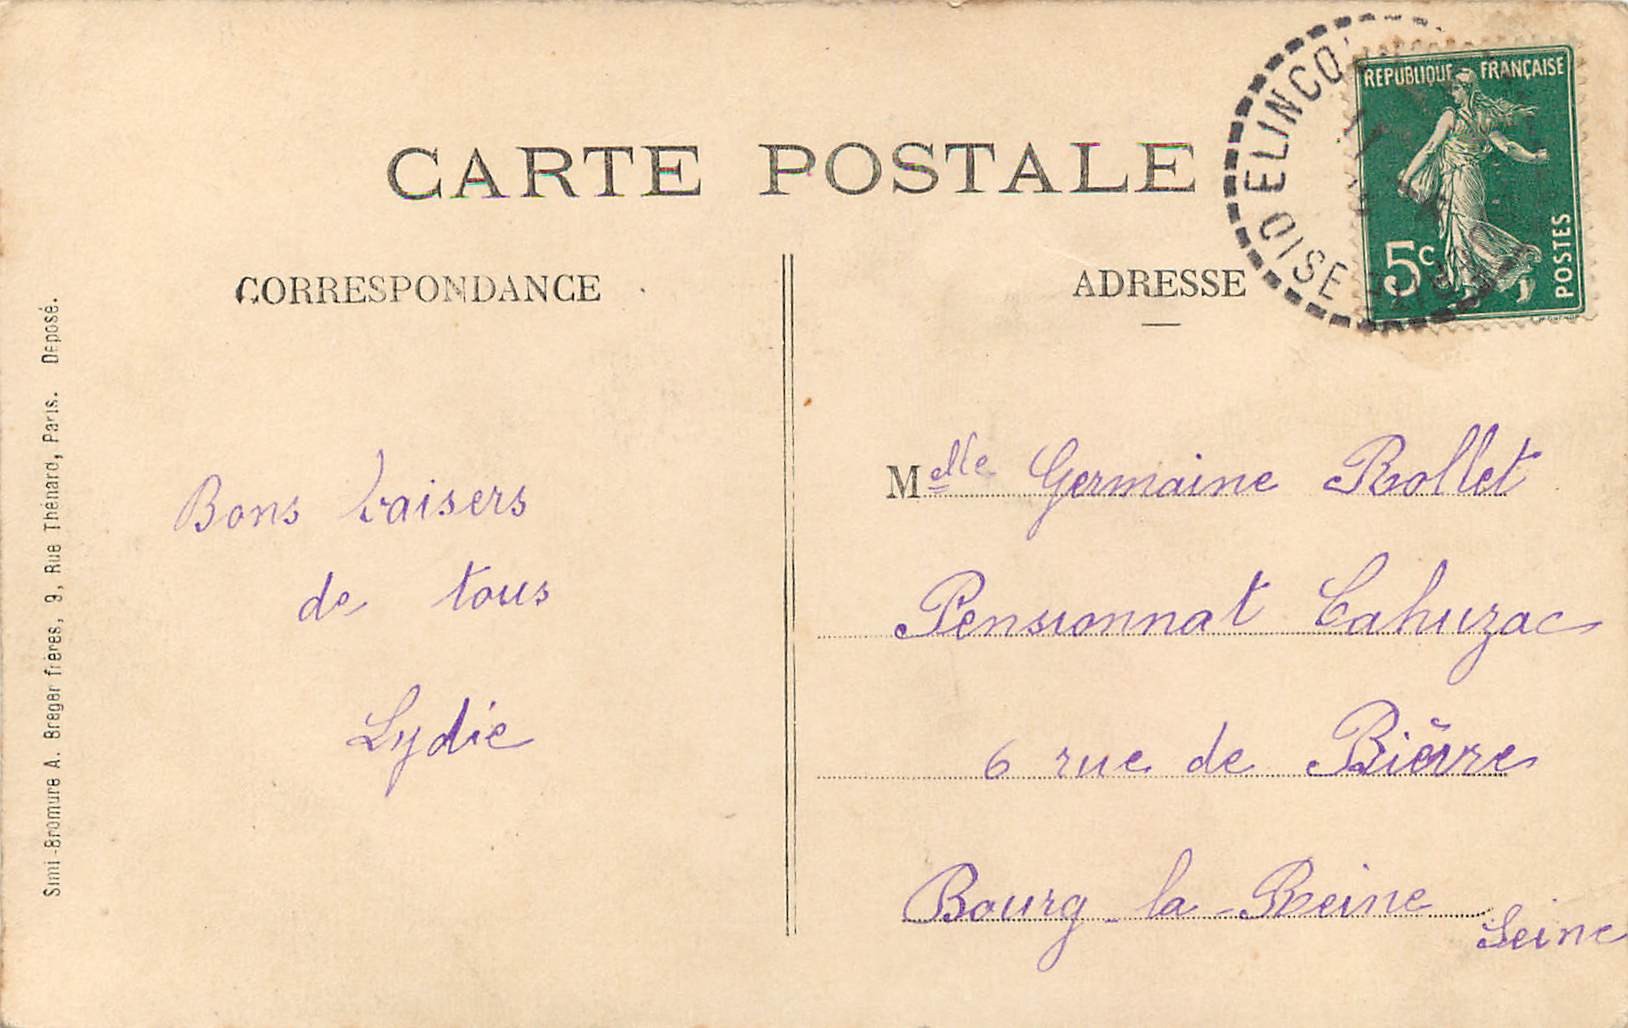 CARTE POSTALE
CORRESPONDANCE
ADRESSE
REPUBLIQUE FRANÇAISE
5c
POSTES
ELINCO
OISE
Bons baisers
de tous
Lydie
Melle Germaine Rollet
Pensionnat Cahuzac
6 rue de Bièvre
Bourg-la-Reine
Seine
Simi-Bromure A. Breger frères, 9, Rue Thénard, Paris. Déposé.